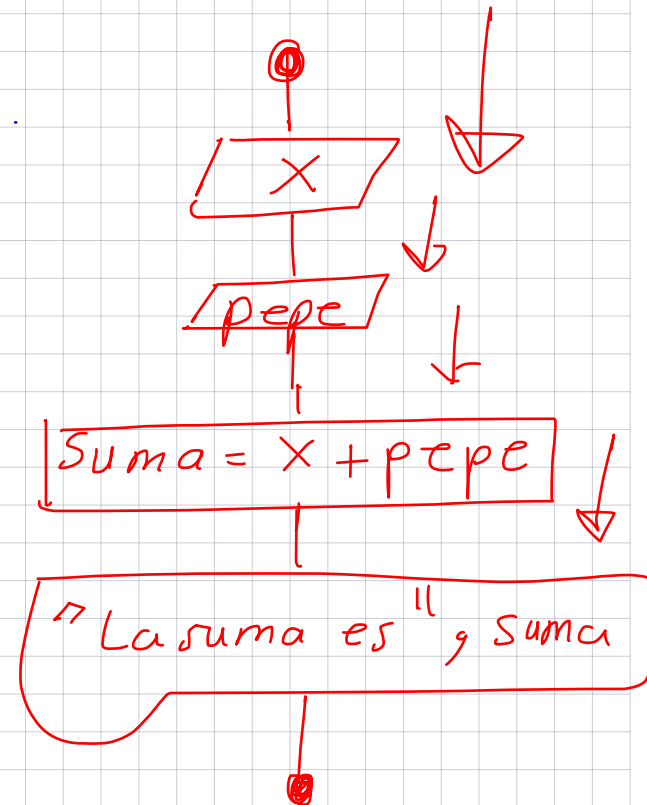 X
pepe
Suma = X + pepe
"La suma es", suma